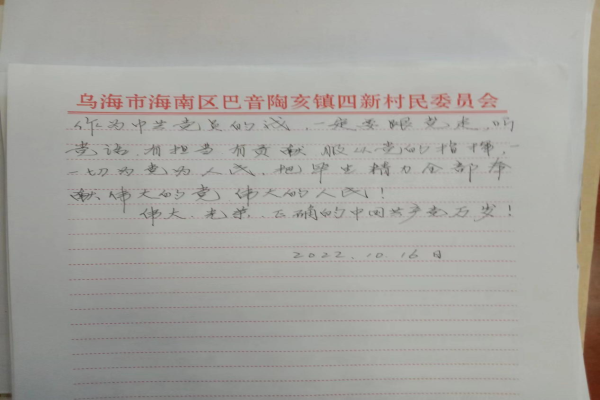 乌海市海南区巴音陶亥镇四新村民委员会
作为中共党员的我，一定要跟党走，听
党话，有担当有贡献服从党的指挥，
一切为党为人民，把毕生精力全部奉
献伟大的党 伟大的人民！
伟大、光荣、正确的中国共产党万岁！
2022.10.16日